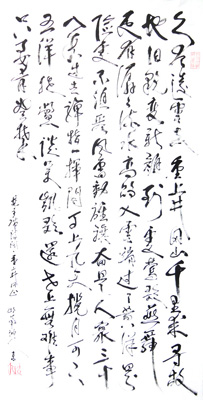 久有凌雲志重上井冈山千里来寻故
地旧貌变新颜到处莺歌燕舞
更有潺潺流水高路入雲端过了黄洋界
险处不须看风雷动旌旗奋是人寰三十
八年过去弹指一挥间可上九天揽月可下
五洋捉鳖谈笑凯歌还世上无难事
只要肯登攀